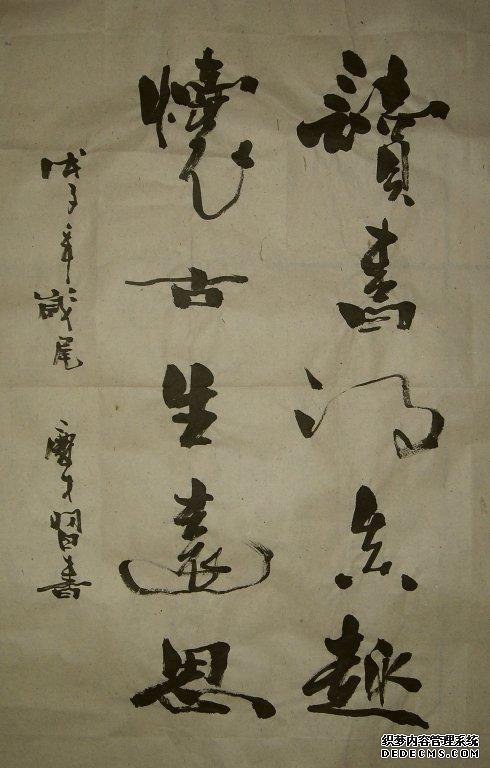 讀書得真趣
懷古生遠思
戊子年歲尾 習書
织梦内容管理系统
DEDECMS.COM